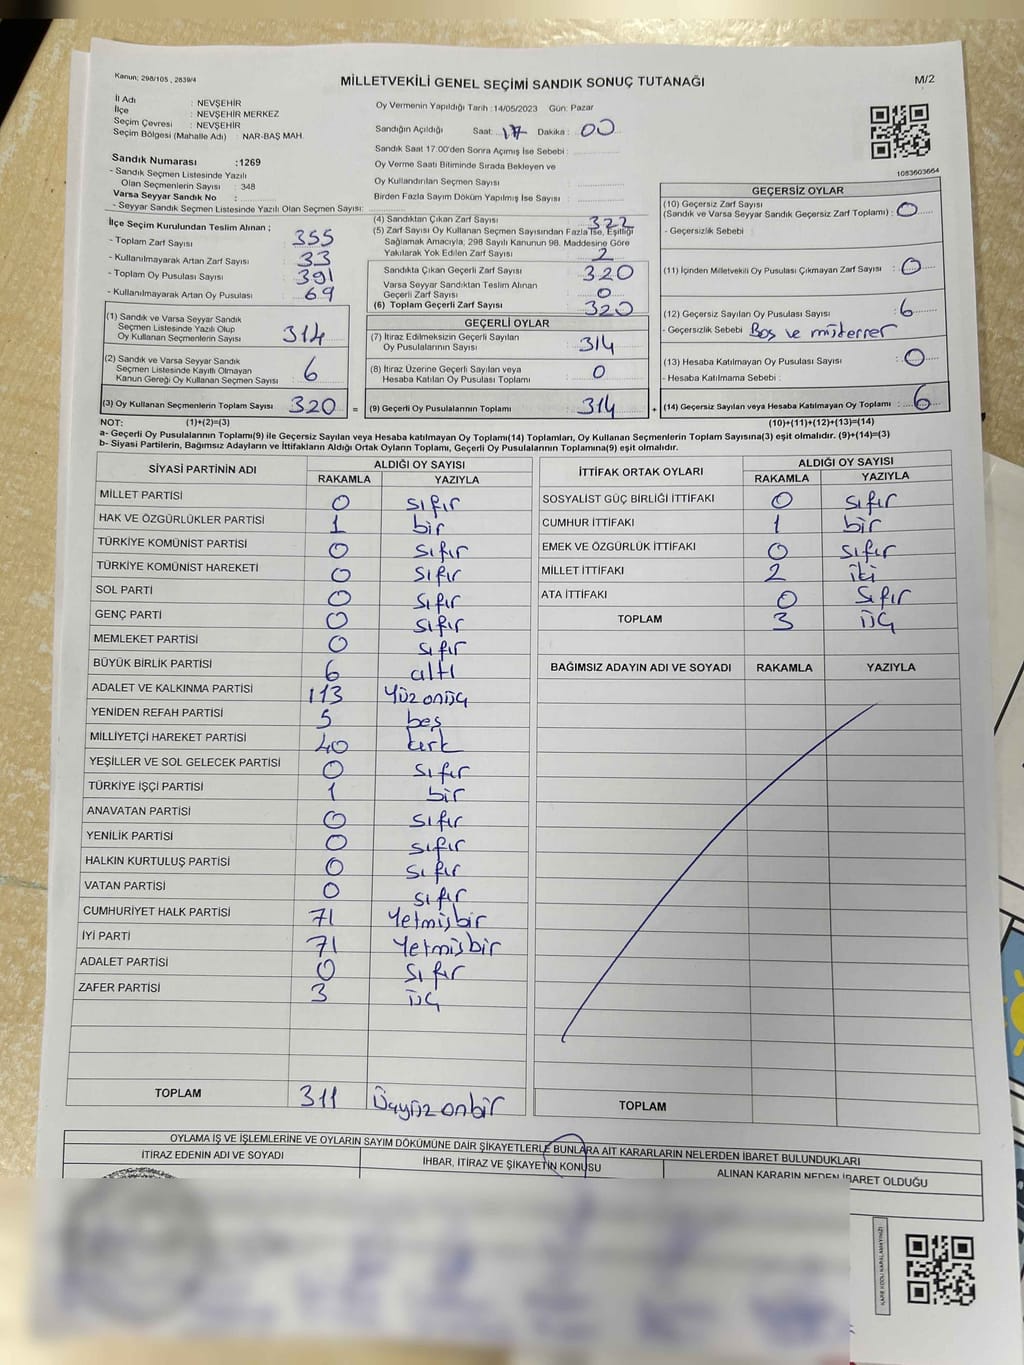 Kanun; 298/105 , 2839/4
MİLLETVEKİLİ GENEL SEÇİMİ SANDIK SONUÇ TUTANAĞI
M/2
İl Adı : NEVŞEHİR
İlçe : NEVŞEHİR MERKEZ
Seçim Çevresi : NEVŞEHİR
Seçim Bölgesi (Mahalle Adı) : NAR-BAŞ MAH.
Sandık Numarası :1269
- Sandık Seçmen Listesinde Yazılı
Olan Seçmenlerin Sayısı : 348
Varsa Seyyar Sandık No :
- Seyyar Sandık Seçmen Listesinde Yazılı Olan Seçmen Sayısı:
Oy Vermenin Yapıldığı Tarih :14/05/2023 Gün: Pazar
Sandığın Açıldığı Saat: 17 Dakika : 00
Sandık Saat 17:00'den Sonra Açımış İse Sebebi :
Oy Verme Saati Bitiminde Sırada Bekleyen ve
Oy Kullandırılan Seçmen Sayısı
Birden Fazla Sayım Döküm Yapılmış İse Sayısı :
1083603664
İlçe Seçim Kurulundan Teslim Alınan ;
- Toplam Zarf Sayısı : 355
- Kullanılmayarak Artan Zarf Sayısı : 33
- Toplam Oy Pusulası Sayısı : 391
- Kullanılmayarak Artan Oy Pusulası : 69
(1) Sandık ve Varsa Seyyar Sandık
Seçmen Listesinde Yazılı Olup
Oy Kullanan Seçmenlerin Sayısı : 314
(2) Sandık ve Varsa Seyyar Sandık
Seçmen Listesinde Kayıtlı Olmayan
Kanun Gereği Oy Kullanan Seçmen Sayısı : 6
(3) Oy Kullanan Seçmenlerin Toplam Sayısı 320 =
(4) Sandıktan Çıkan Zarf Sayısı 322
(5) Zarf Sayısı Oy Kullanan Seçmen Sayısından Fazla İse, Eşitliği
Sağlamak Amacıyla, 298 Sayılı Kanunun 98. Maddesine Göre
Yakılarak Yok Edilen Zarf Sayısı 2
Sandıkta Çıkan Geçerli Zarf Sayısı 320
Varsa Seyyar Sandıktan Teslim Alınan
Geçerli Zarf Sayısı 0
(6) Toplam Geçerli Zarf Sayısı 320
GEÇERLİ OYLAR
(7) İtiraz Edilmeksizin Geçerli Sayılan
Oy Pusulalarının Sayısı : 314
(8) İtiraz Üzerine Geçerli Sayılan veya
Hesaba Katılan Oy Pusulası Toplamı : 0
(9) Geçerli Oy Pusulalarının Toplamı : 314 +
GEÇERSİZ OYLAR
(10) Geçersiz Zarf Sayısı
(Sandık ve Varsa Seyyar Sandık Geçersiz Zarf Toplamı) : 0
- Geçersizlik Sebebi :
(11) İçinden Milletvekili Oy Pusulası Çıkmayan Zarf Sayısı : 0
(12) Geçersiz Sayılan Oy Pusulası Sayısı : 6
- Geçersizlik Sebebi Boş ve müsterrer
(13) Hesaba Katılmayan Oy Pusulası Sayısı : 0
- Hesaba Katılmama Sebebi :
(14) Geçersiz Sayılan veya Hesaba Katılmayan Oy Toplamı : 6
NOT: (1)+(2)=(3) (10)+(11)+(12)+(13)=(14)
a- Geçerli Oy Pusulalarının Toplamı(9) ile Geçersiz Sayılan veya Hesaba katılmayan Oy Toplamı(14) Toplamları, Oy Kullanan Seçmenlerin Toplam Sayısına(3) eşit olmalıdır. (9)+(14)=(3)
b- Siyasi Partilerin, Bağımsız Adayların ve İttifakların Aldığı Ortak Oyların Toplamı, Geçerli Oy Pusulalarının Toplamına(9) eşit olmalıdır.
SİYASİ PARTİNİN ADI ALDIĞI OY SAYISI
RAKAMLA YAZIYLA
MİLLET PARTİSİ 0 sıfır
HAK VE ÖZGÜRLÜKLER PARTİSİ 1 bir
TÜRKİYE KOMÜNİST PARTİSİ 0 sıfır
TÜRKİYE KOMÜNİST HAREKETİ 0 sıfır
SOL PARTİ 0 sıfır
GENÇ PARTİ 0 sıfır
MEMLEKET PARTİSİ 0 sıfır
BÜYÜK BİRLİK PARTİSİ 6 altı
ADALET VE KALKINMA PARTİSİ 113 Yüzonüç
YENİDEN REFAH PARTİSİ 5 beş
MİLLİYETÇİ HAREKET PARTİSİ 40 kırk
YEŞİLLER VE SOL GELECEK PARTİSİ 0 sıfır
TÜRKİYE İŞÇİ PARTİSİ 1 bir
ANAVATAN PARTİSİ 0 sıfır
YENİLİK PARTİSİ 0 sıfır
HALKIN KURTULUŞ PARTİSİ 0 sıfır
VATAN PARTİSİ 0 sıfır
CUMHURİYET HALK PARTİSİ 71 Yetmişbir
İYİ PARTİ 71 Yetmişbir
ADALET PARTİSİ 0 sıfır
ZAFER PARTİSİ 3 üç
TOPLAM 311 Üçyüzonbir
İTTİFAK ORTAK OYLARI ALDIĞI OY SAYISI
RAKAMLA YAZIYLA
SOSYALİST GÜÇ BİRLİĞİ İTTİFAKI 0 sıfır
CUMHUR İTTİFAKI 1 bir
EMEK VE ÖZGÜRLÜK İTTİFAKI 0 sıfır
MİLLET İTTİFAKI 2 iki
ATA İTTİFAKI 0 sıfır
TOPLAM 3 üç
BAĞIMSIZ ADAYIN ADI VE SOYADI RAKAMLA YAZIYLA
TOPLAM
OYLAMA İŞ VE İŞLEMLERİNE VE OYLARIN SAYIM DÖKÜMÜNE DAİR ŞİKAYETLERLE BUNLARA AİT KARARLARIN NELERDEN İBARET BULUNDUKLARI
İTİRAZ EDENİN ADI VE SOYADI İHBAR, İTİRAZ VE ŞİKAYETİN KONUSU ALINAN KARARIN NEDEN İBARET OLDUĞU